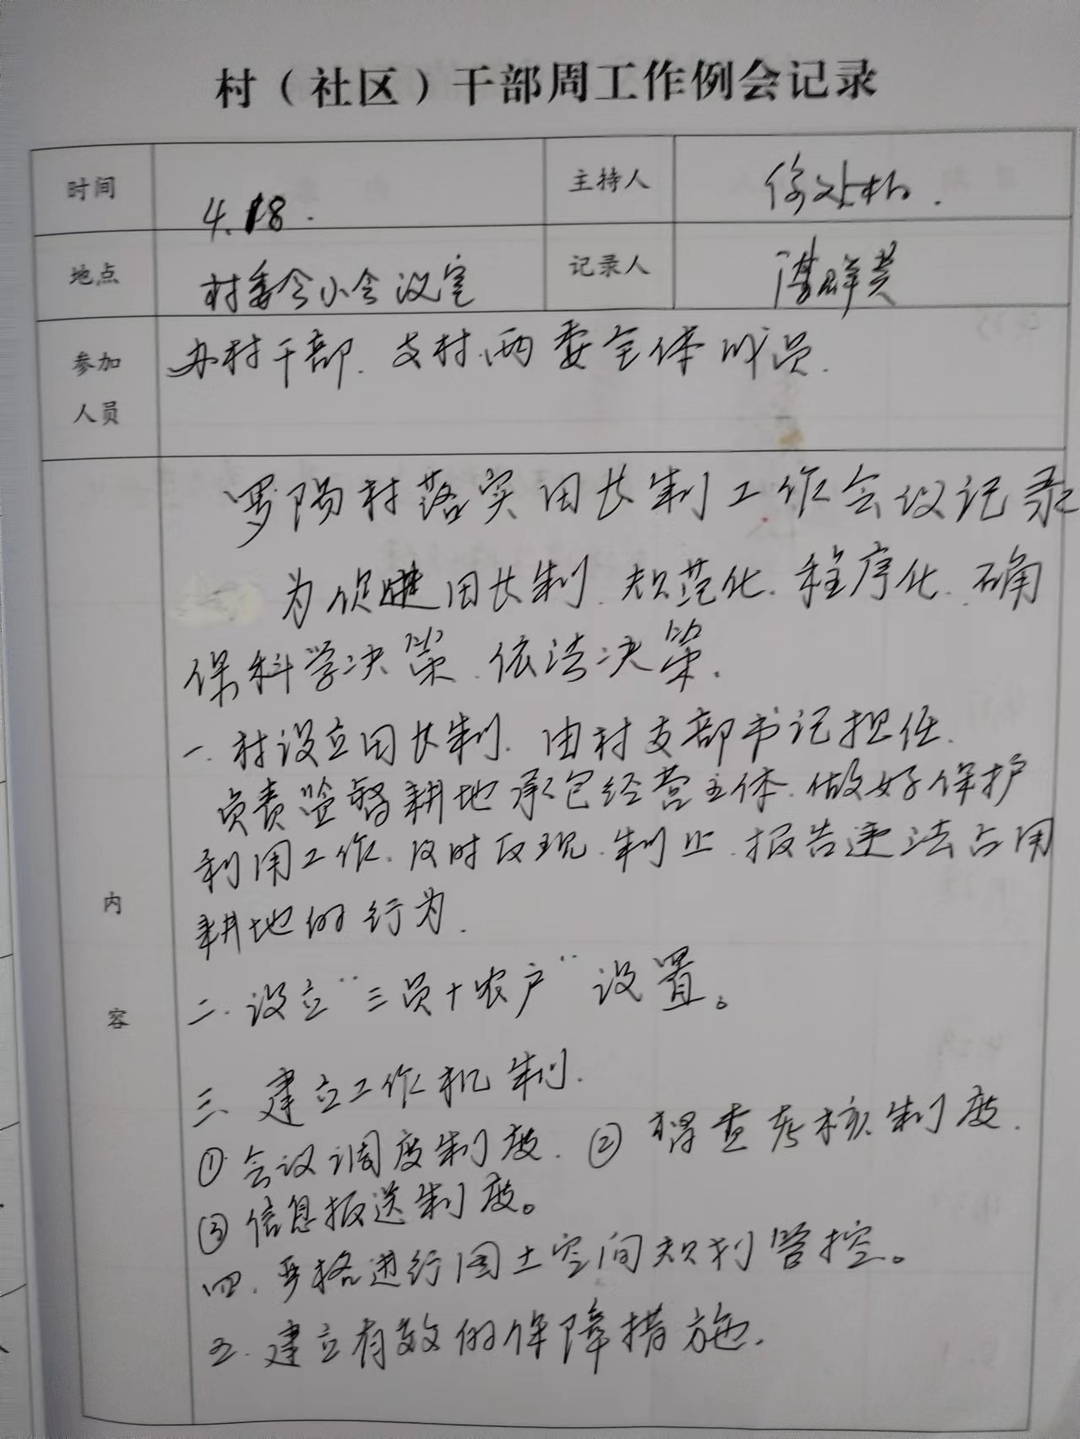 村（社区）干部周工作例会记录
时间 4.18. 主持人
地点 村委会小会议室 记录人
参加人员 办村干部、支村两委全体成员.
内容
罗阳村落实田长制工作会议记录
为促进田长制、规范化、程序化、确
保科学决策、依法决策.
一、村设立田长制、由村支部书记担任、
负责监督耕地承包经营主体、做好保护
利用工作、及时发现、制止、报告违法占用
耕地的行为.
二、设立“三员+农户”设置。
三、建立工作机制.
①会议调度制度、②督查考核制度、
③信息报送制度。
四、严格进行国土空间规划管控。
五、建立有效的保障措施.